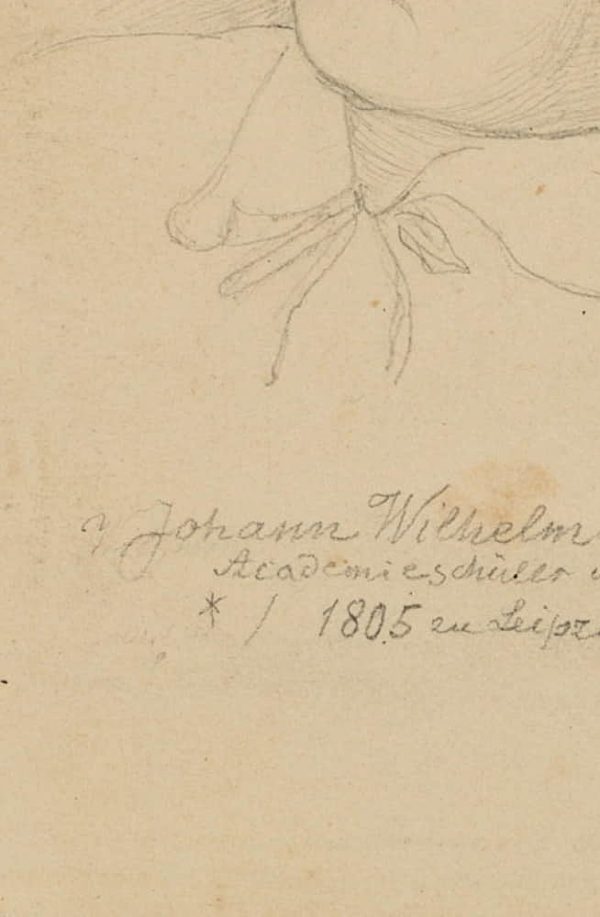 Johann Wilhelm
Academieschüler
* / 1805 zu Leipz